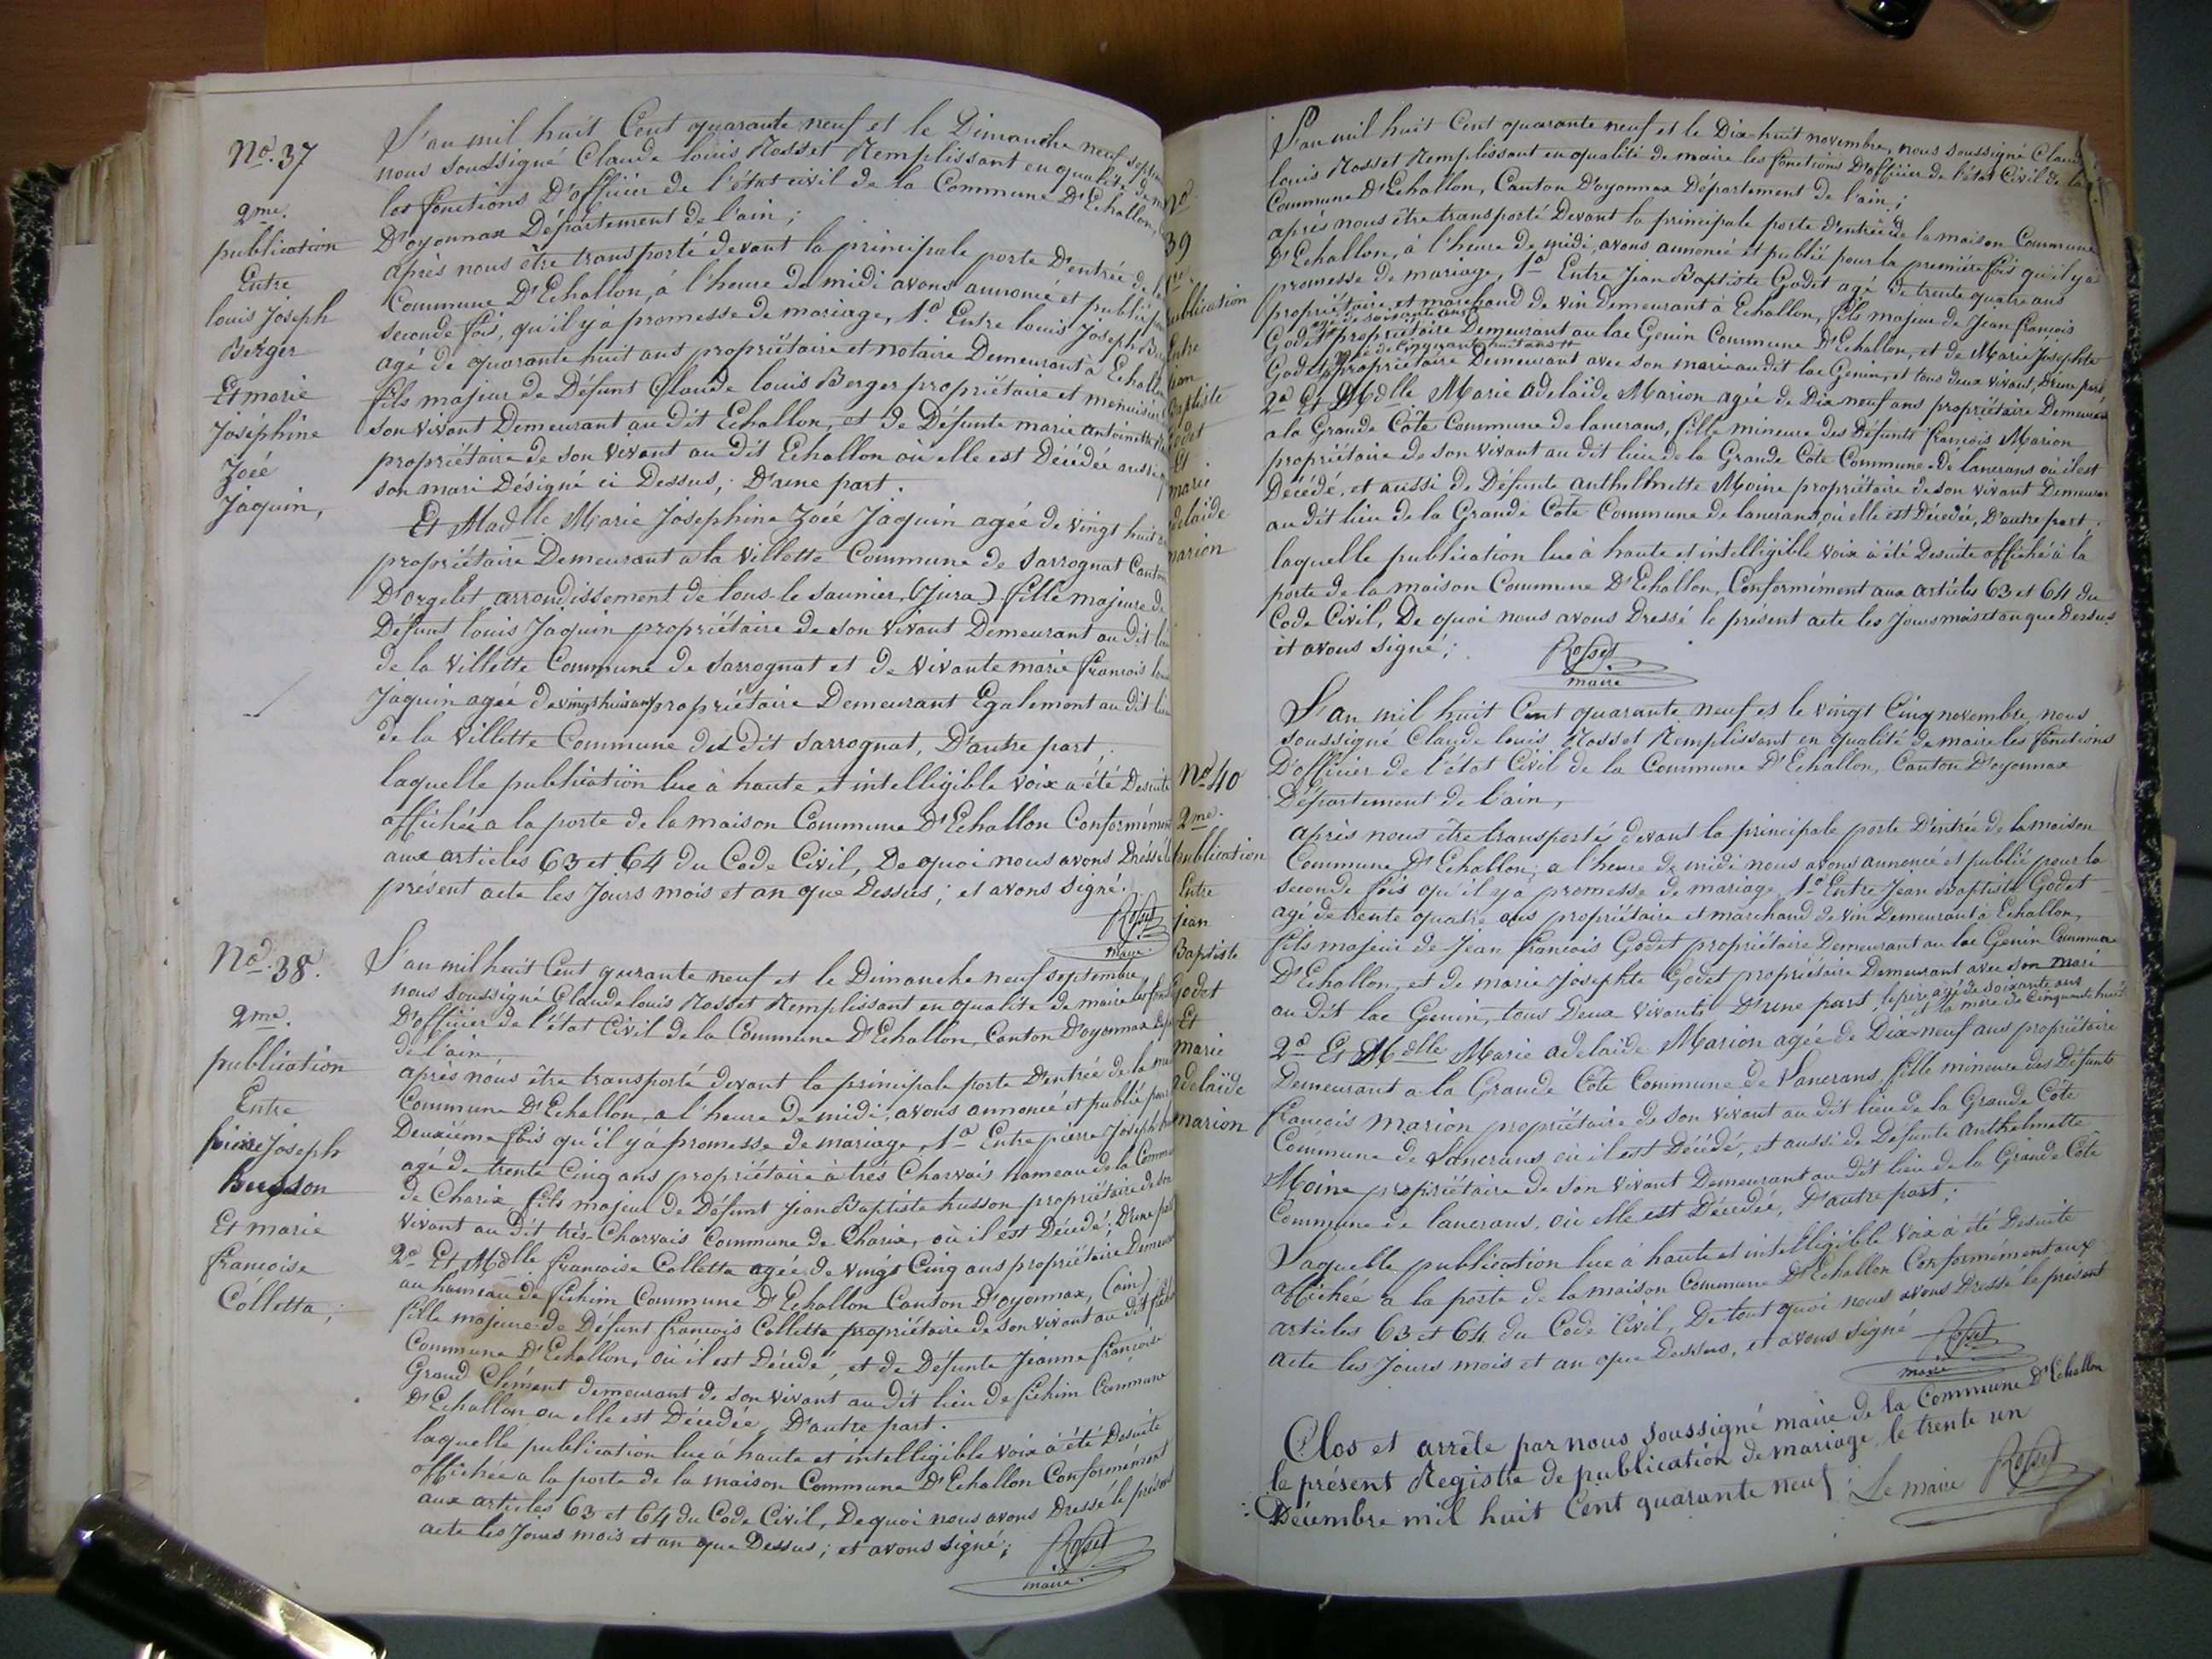 No. 37
2me.
publication
Entre
louis Joseph
Berger
Et marie
Joséphine
Zoéé
Jaquin,
L'an mil huit Cent quarante neuf et le Dimanche neuf
nous soussigné Claude louis Rosset Remplissant en qualité de
les fonctions D'officier de l'état civil de la Commune D'Echallon,
D'oyonnax Département de l'ain;
après nous être transporté devant la principale porte D'entrée de
Commune D'Echallon, à l'heure de midi avons annoncé et publié
seconde fois, qu'il y à promesse de mariage, 1o. Entre louis Joseph
agé de quarante huit ans propriétaire et notaire Demeurant à
fils majeur de Défunt Claude louis Berger propriétaire et menuisier
son vivant Demeurant au dit Echallon, et de Défunte marie antoinette
propriétaire de son vivant au dit Echallon où elle est Décédée aussi
son mari Désigné ci Dessus, D'une part.
Et Madlle Marie Josephine Zoéé Jaquin agée de vingt huit
propriétaire Demeurant a la Villette Commune de Sarrognat Canton
D'orgelet arrondissement de lons-le saunier, (Jura) fille majeure de
Défunt louis Jaquin propriétaire de son vivant Demeurant au dit
de la Villette Commune de Sarrognat et de Vivante marie francois
Jaquin agée de propriétaire Demeurant Egalement au dit
de la Villette Commune du dit Sarrognat, D'autre part.
laquelle publication lue à haute et intelligible voix a été Desuite
affichée a la porte de la maison Commune D'Echallon Conformément
aux articles 63 et 64 du Code Civil, De quoi nous avons Dréssé le
présent acte les Jours mois et an que Dessus; et avons signé.
Rosset
maire
No. 38.
2me.
publication
Entre
pierre Joseph
husson
Et marie
francoise
Colletta;
L'an mil huit Cent qurante neuf et le Dimanche neuf septembre
nous soussigné Claude louis Rosset Remplissant en qualité de maire les
D'officier de l'état Civil de la Commune D'Echallon, Canton D'oyonnax
de l'ain
après nous être transporté devant la principale porte D'entrée de la
Commune D'Echallon, a l'heure de midi, avons annoncé et publié pour
Deuxième fois qu'il y à promesse de mariage, 1o Entre pierre Joseph
agé de trente Cinq ans propriétaire à très Charvais hameau de la
de Charix fils majeur de Défunt Jean Baptiste husson propriétaire de son
vivant au dit très-Charvais Commune de Charix, où il est Décédé; D'une part
2o Et Mdlle francoise Colletta agée de vingt Cinq ans propriétaire
au hameau de fichim Commune D'Echallon Canton D'oyonnax, (ain)
fille majeure de Défunt francois Colletta propriétaire de son vivant au dit
Commune D'Echallon, où il est Décédé, et de Défunte Jeanne francoise
Grand Clément demeurant de son vivant au dit lieu de fichim Commune
D'Echallon ou elle est Décédée, D'autre part.
laquelle publication lue à haute et intelligible voix à été Desuite
affichée a la porte de la maison Commune D'Echallon Conformément
aux articles 63 et 64 du Code Civil, De quoi nous avons Dressé le présent
acte les Jours mois et an que Dessus; et avons signé;
Rosset
maire
No
39
publication
Entre
marie
marion
L'an mil huit Cent quarante neuf et le Dix-huit novembre, nous soussigné
louis Rosset Remplissant en qualité de maire les fonctions D'officier de l'état Civil de la
Commune D'Echallon, Canton D'oyonnax Département de l'ain;
après nous être transporté Devant la principale porte d'entrée de la maison Commune
D'Echallon, à l'heure de midi, avons annoncé et publié pour la première fois qu'il y à
promesse de mariage, 1o Entre Jean Baptiste Godet agé de trente quatre ans
propriétaire et marchand de vin Demeurant à Echallon, fils majeur de Jean francois
agé de soixante ans
Godet propriétaire Demeurant au lac Genin Commune D'Echallon, et de Marie Josephte
agée de Cinquante huit ans
Godet propriétaire Demeurant avec son mari au dit lac Genin, et tous deux vivant, D'une part
2o Et Mdlle Marie adelaide Marion agée de Dix neuf ans propriétaire Demeurant
a la Grande Côte Commune de lancrans, fille mineure des Défunts francois Marion
propriétaire de son vivant au dit lieu de la Grande Côte Commune de lancrans où il est
Décédé, et aussi de Défunte anthelmette Moine propriétaire de son vivant Demeurant
au dit lieu de la Grande Côte Commune de lancrans, où elle est Décédée, D'autre part.
laquelle publication lue à haute et intelligible voix à été Desuite affiché à la
porte de la maison Commune D'Echallon, Conformément aux articles 63 et 64 du
Code Civil, De quoi nous avons Dressé le présent acte les Jours mois et an que Dessus
et avons signé;
Rosset
maire
No 40
2me.
publication
Entre
jean
Baptiste
godet
Et
marie
adelaïde
marion
L'an mil huit Cent quarante neuf et le vingt Cinq novembre, nous
soussigné Claude louis Rosset Remplissant en qualité de maire les fonctions
D'officier de l'état Civil de la Commune D'Echallon, Canton D'oyonnax
Département de l'ain,
après nous être transportés devant la principale porte D'entrée de la maison
Commune D'Echallon, a l'heure de midi nous avons annoncé et publié pour la
seconde fois qu'il y à promesse de mariage, 1o Entre Jean Baptiste Godet
agé de trente quatre ans propriétaire et marchand de vin Demeurant à Echallon,
fils majeur de Jean francois Godet propriétaire Demeurant au lac Genin Commune
D'Echallon, et de marie Josephte Godet propriétaire Demeurant avec son mari
au dit lac Genin, tous Deux vivants D'une part, le père agé de soixante ans
et la mère de Cinquante huit
2o Et Mdlle Marie adelaïde Marion agée de Dix-neuf ans propriétaire
Demeurant a la Grande Côte Commune de Lancrans, fille mineure des Défunts
francois Marion propriétaire de son vivant au dit lieu de la Grande Côte
Commune de Lancrans où il est Décédé, et aussi de Défunte Anthelmette
Moine propriétaire de son vivant Demeurant au dit lieu de la Grande Côte
Commune de lancrans, où elle est Décédée, D'autre part;
Laquelle publication lue à haute et intelligible voix à été Desuite
affichée a la porte de la maison Commune D'Echallon Conformément aux
articles 63 et 64 du Code Civil, De tout quoi nous avons Dressé le présent
acte les Jours mois et an que Dessus, et avons signé
Rosset
maire
Clos et arrête par nous soussigné maire de la Commune D'Echallon
le présent Registre de publication de mariage, le trente un
Décembre mil huit Cent quarante neuf;
Le maire Rosset